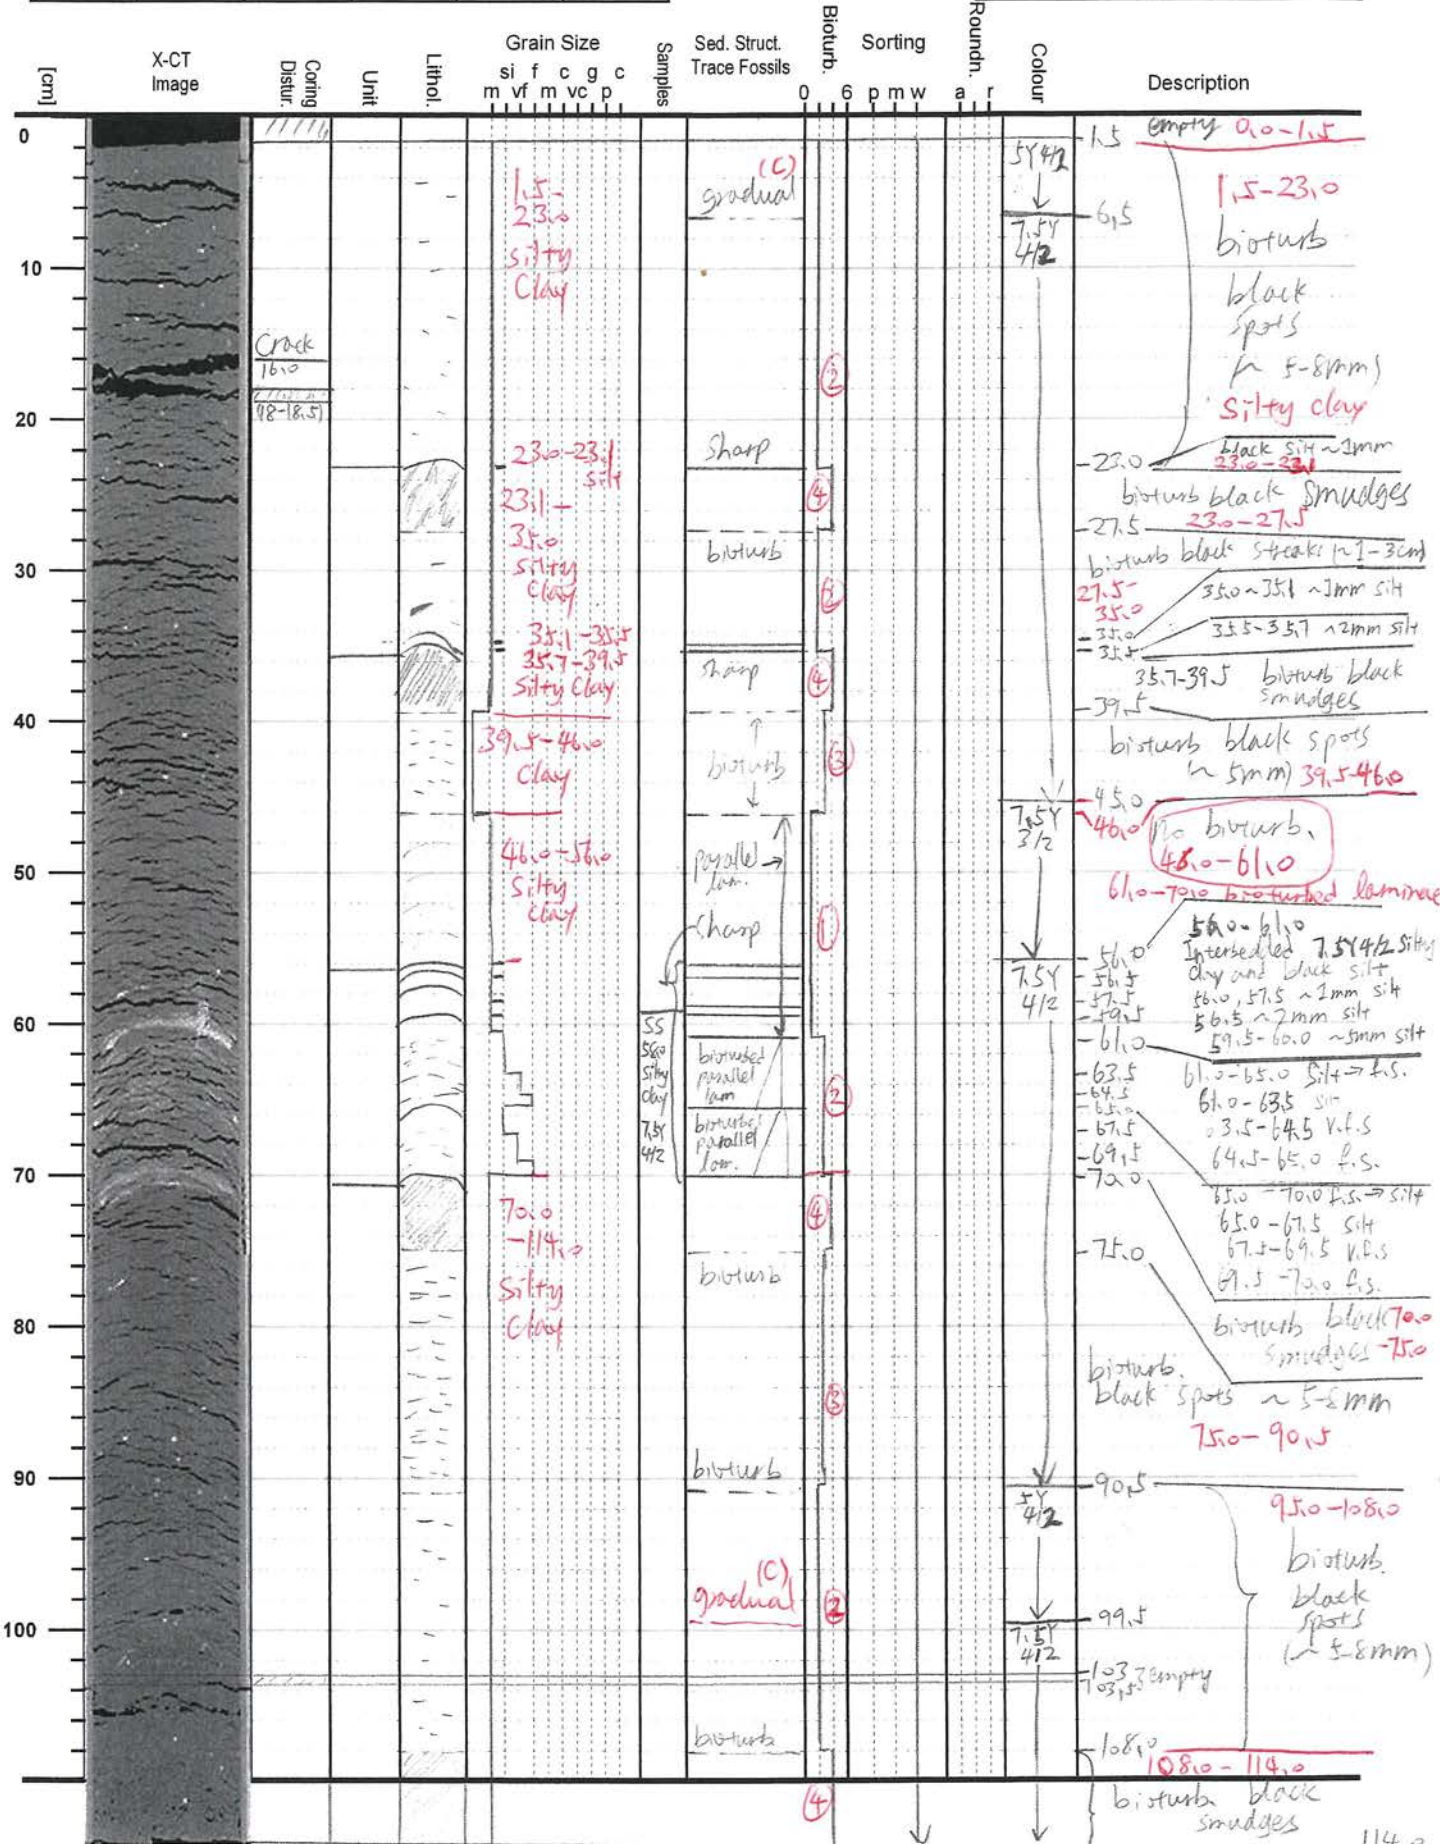 [cm]
X-CT
Image
Coring
Distur.
Unit
Lithol.
Grain Size
si f c g c
m vf m vc p
Samples
Sed. Struct.
Trace Fossils
Bioturb.
0 6
Sorting
p m w
Roundn.
a r
Colour
Description
0
10
20
30
40
50
60
70
80
90
100
Crack
16.0
18-18.5)
1.5-
23.0
silty
Clay
23.0-23.1
silt
23.1-
35.0
silty
Clay
35.1-35.5
35.7-39.5
Silty Clay
39.5-46.0
Clay
46.0-56.0
Silty
Clay
70.0
-114.0
Silty
Clay
SS
58.0
silty
clay
7.5Y
4/2
(C)
gradual
sharp
bioturb
sharp
bioturb
parallel
lam.
Sharp
bioturbed
parallel
lam
bioturbed
parallel
lam.
bioturb
bioturb
(C)
gradual
bioturb
2
4
2
4
3
1
2
4
3
2
4
5Y 4/2
7.5Y
4/2
7.5Y
3/2
7.5Y
4/2
5Y
4/2
7.5Y
4/2
1.5
empty 0.0-1.5
6.5
1.5-23.0
bioturb
black
spots
(~ 5-8mm)
Silty clay
23.0
black silt ~1mm
23.0-23.1
bioturb black smudges
27.5
23.0-27.5
bioturb black streaks (~1-3cm)
27.5-
35.0
35.0~35.1 ~1mm silt
35.0
35.5-35.7 ~2mm silt
35.5
35.7-39.5 bioturb black
smudges
39.5
bioturb black spots
(~ 5mm) 39.5-46.0
45.0
46.0
no bioturb.
46.0-61.0
61.0-70.0 bioturbed laminae
56.0
56.0-61.0
Interbedded 7.5Y4/2 Silty
clay and black silt
56.5
57.5
56.0, 57.5 ~1mm silt
59.5
56.5 ~2mm silt
59.5-60.0 ~5mm silt
61.0
61.0-65.0 Silt→f.s.
63.5
61.0-63.5 silt
64.5
63.5-64.5 v.f.s
65.0
64.5-65.0 f.s.
67.5
69.5
70.0
65.0-70.0 f.s.→silt
65.0-67.5 silt
67.5-69.5 v.f.s
69.5-70.0 f.s.
75.0
bioturb black 70.0
smudges -75.0
bioturb.
black spots ~ 5-8mm
75.0-90.5
90.5
95.0-108.0
bioturb.
black
spots
(~ 5-8mm)
99.5
103 } empty
103.5
108.0
108.0-114.0
bioturb. black
smudges